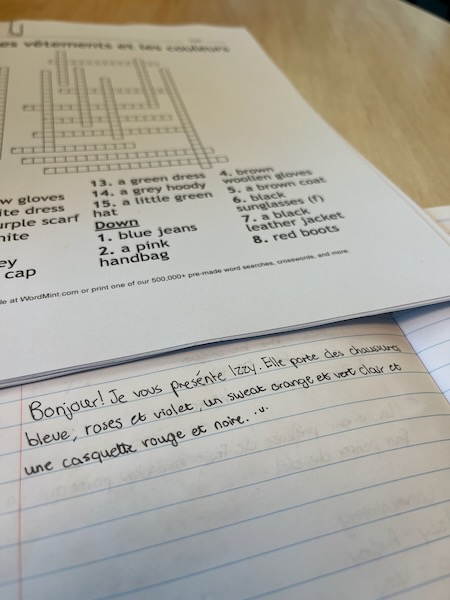 es vêtements et les couleurs
w gloves
ite dress
urple scarf
hite
ey
cap
13. a green dress
14. a grey hoody
15. a little green
hat
Down
1. blue jeans
2. a pink
handbag
4. brown
woollen gloves
5. a brown coat
6. black
sunglasses (f)
7. a black
leather jacket
8. red boots
le at WordMint.com or print one of our 500,000+ pre-made word searches, crosswords, and more.
Bonjour! Je vous présénte Izzy. Elle porte des chaussures
bleue, roses et violet, un sweat orange et vert clair et
une casquette rouge et noire...